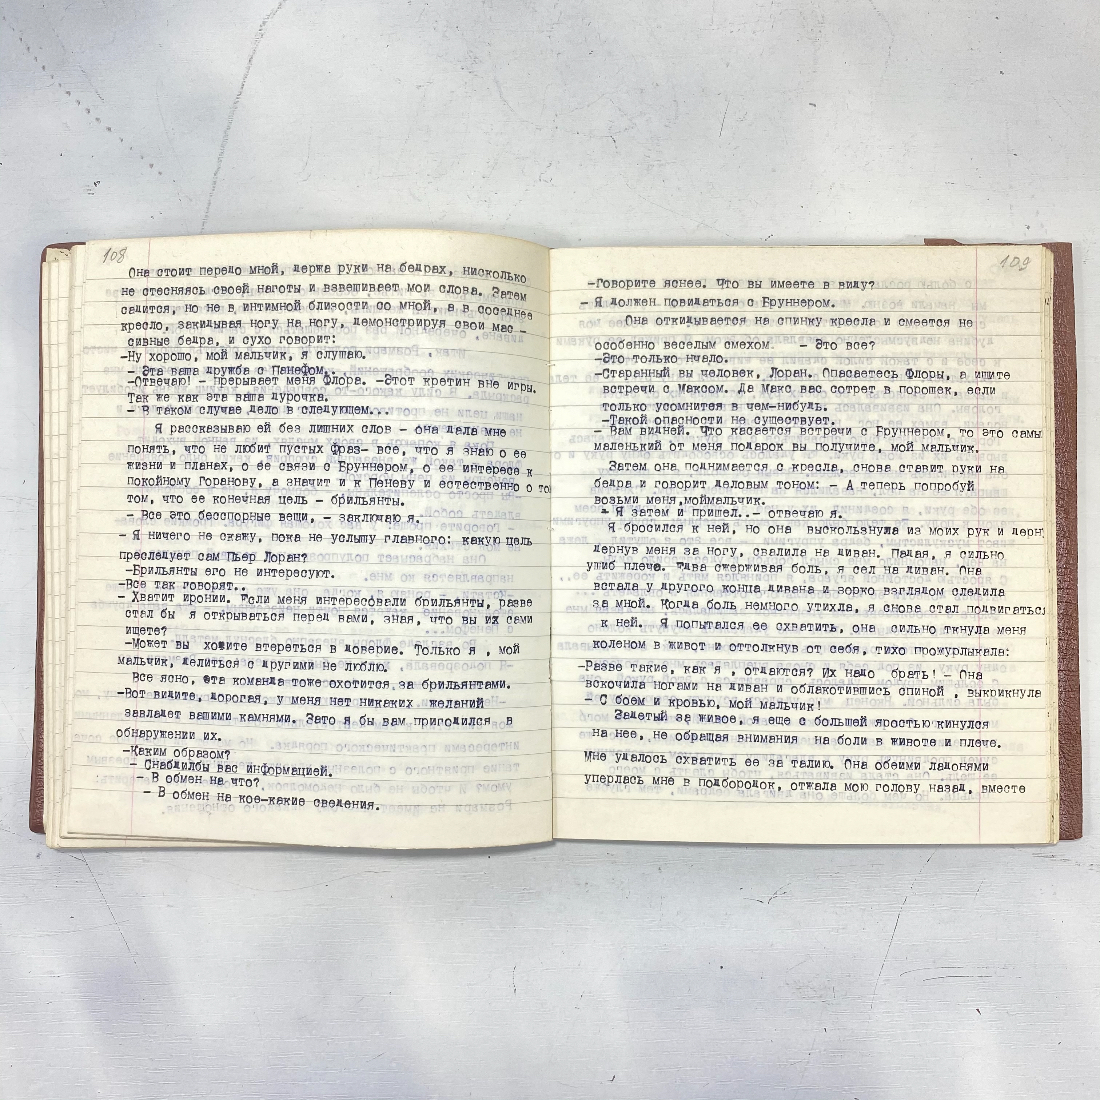 108
Она стоит передо мной, держа руки на бедрах, нисколько
не стесняясь своей наготы и взвешивает мои слова. Затем
садится, но не в интимной близости со мной, а в соседнее
кресло, закидывая ногу на ногу, демонстрируя свои мас -
сивные бедра, и сухо говорит:
-Ну хорошо, мой мальчик, я слушаю.
- Эта ваша дружба с Панефом..
-Отвечаю! - прерывает меня Флора. -Этот кретин вне игры.
Так же как эта ваша дурочка.
- В таком случае дело в следующем...
Я рассказываю ей без лишних слов - она дала мне
понять, что не любит пустых Фраз- все, что я знаю о ее
жизни и планах, о ее связи с Бруннером, о ее интересе к
покойному Горанову, а значит и к Пеневу и естественно о то
том, что ее конечная цель - брильянты.
- Все это бесспорные вещи, - заключаю я.
- Я ничего не скажу, пока не услышу главного: какую цель
преследует сам Пьер Лоран?
-Брильянты его не интересуют.
-Все так говорят..
- Хватит иронии. Если меня интересовали брильянты, разве
стал бы я открываться перед вами, зная, что вы их сами
ищете?
-Может вы хотите втереться в доверие. Только я , мой
мальчик, делиться с другими не люблю.
Все ясно, эта команда тоже охотится за брильянтами.
-Вот видите, дорогая, у меня нет никаких желаний
завладет вашими камнями. Зато я бы вам пригодился в
обнаружении их.
-Каким образом?
- Снабдилбы вас информацией.
- В обмен на что?
- В обмен на кое-какие сведения.
109
-Говорите яснее. Что вы имеете в виду?
- Я должен повидаться с Бруннером.
Она откидывается на спинку кресла и смеется не
особенно веселым смехом. - Это все?
-Это только нчало.
-Старанный вы человек, Лоран. Опасаетесь Флоры, а ищите
встречи с Максом. Да Макс вас сотрет в порошек, если
только усомнится в чем-нибудь.
-Такой опасности не существует.
- Вам видней. Что касается встречи с Бруннером, то это самы
маленький от меня подарок вы получите, мой мальчик.
Затем она поднимается с кресла, снова ставит руки на
бедра и говорит деловым тоном: - А теперь попробуй
возьми меня,моймальчик.
- Я затем и пришел..- отвечаю я.
Я бросился к ней, но она выскользнула из моих рук и дерн
дернув меня за ногу, свалила на диван. Падая, я сильно
ушиб плечо. Едва сжерживая боль, я сел на диван. Она
встала у другого конца дивана и зорко взглядом следила
за мной. Когда боль немного утихла, я снова стал подвигаться
к ней. Я попытался ее схватить, она сильно ткнула меня
коленом в живот и оттолкнув от себя, тихо прожурлыкала:
-Разве такие, как я , отдаются? Их надо брать! - Она
вскочила ногами на диван и облакотившись спиной , выкрикнула
- С боем и кровью, мой мальчик!
Задетый за живое, я еще с большей яростью кинулся
на нее, не обращая внимания на боли в животе и плече.
Мне удалось схватить ее за талию. Она обеими ладонями
уперлась мне в подбородок, отжала мою голову назад, вместе